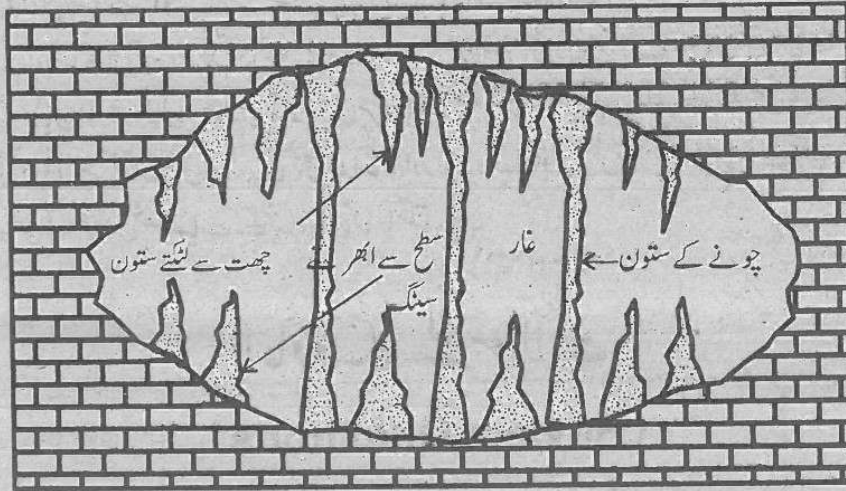 چونے کے ستون
غار
سطح سے ابھرتے
سینگ
چھت سے لٹکتے ستون